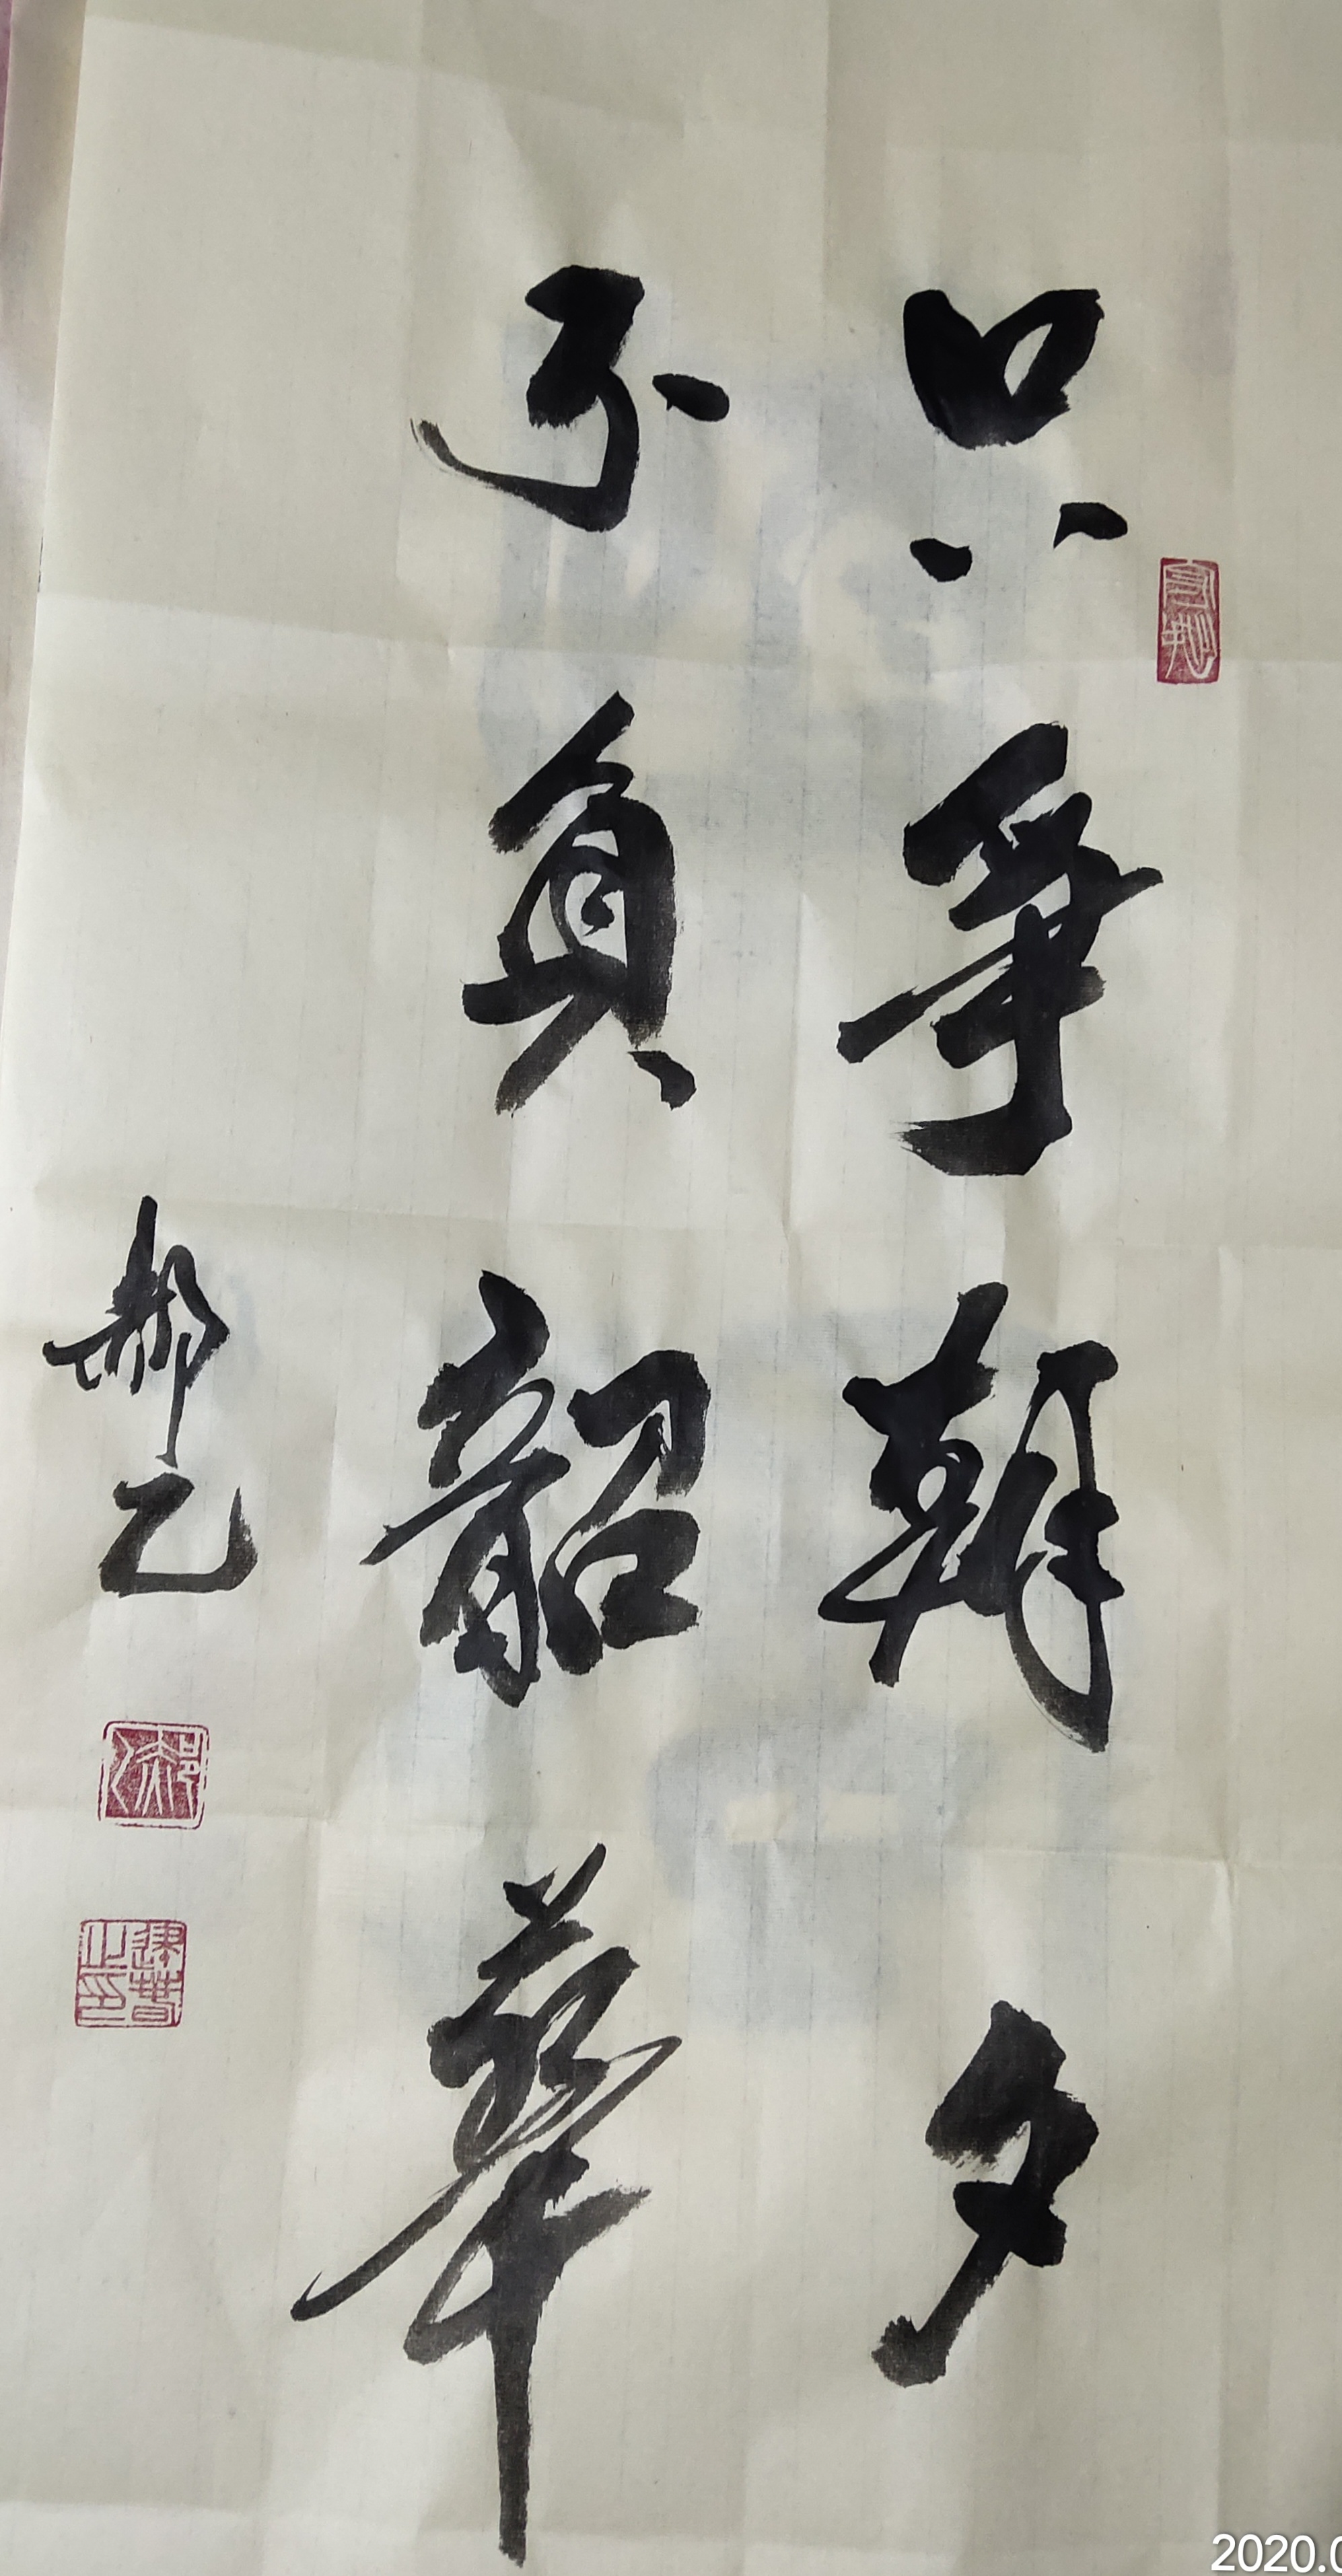 只争朝夕
不負韶華
郝乙
2020.0